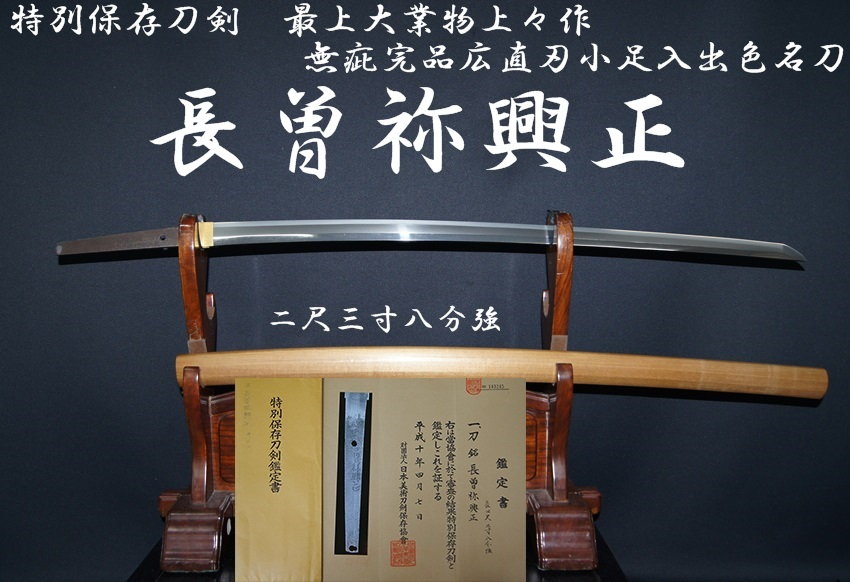 特別保存刀剣　最上大業物上々作
無疵完品広直刃小足入出色名刀
長曽祢興正
二尺三寸八分強
特別保存刀剣鑑定書
鑑定書
一、刀 銘 長曽祢興正
右は當協會に於て審査の結果特別保存刀剣と
鑑定しこれを証する
平成十年四月七日
財團法人 日本美術刀剣保存協會